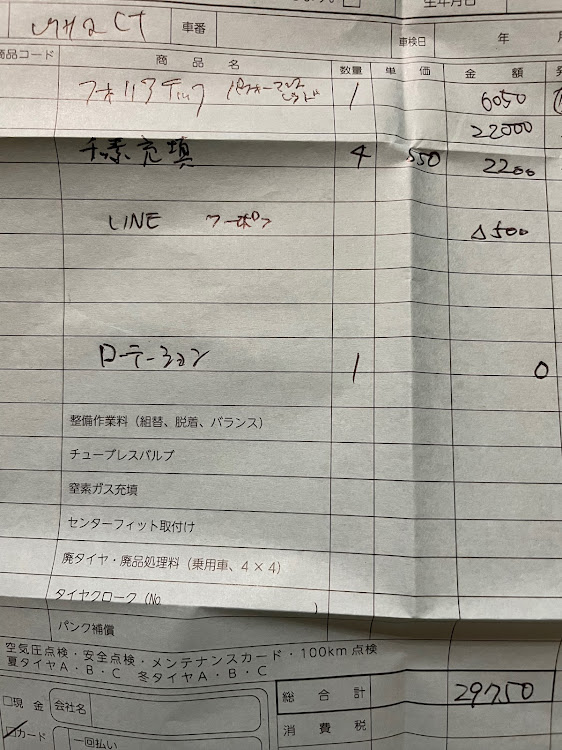 生年月日
CT 車番 車検日 年 月
商品コード 商品名 数量 単価 金額
1 6050
22000
チッ素充填 4 550 2200
LINE クーポン △500
ローテーション 1 0
整備作業料（組替、脱着、バランス）
チューブレスバルブ
窒素ガス充填
センターフィット取付け
廃タイヤ・廃品処理料（乗用車、4×4）
タイヤクローク（No. ）
パンク補償
空気圧点検・安全点検・メンテナンスカード・100km点検
夏タイヤA・B・C 冬タイヤA・B・C
総合計 29750
□現金 会社名
消費税
☑カード 一回払い